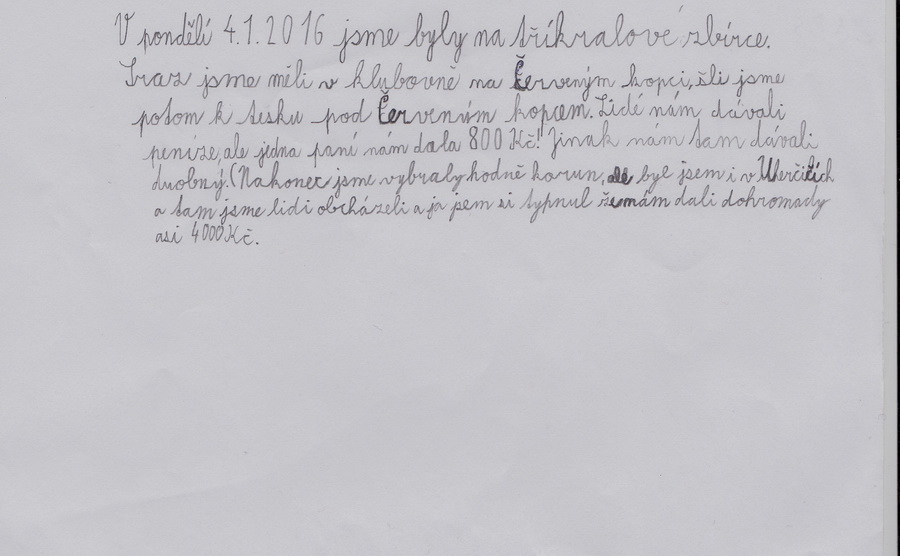 V pondělí 4.1.2016 jsme byly na tříkralové zbírce.
Sraz jsme měli v klubovně na Červeným kopci, šli jsme
potom k tesku pod Červeným kopcem. Lidé nám dávali
peníze, ale jedna paní nám dala 800 Kč! Jinak nám tam dávali
druobný. (Nakonec jsme vybraly hodně korun, ale byl jsem i v
a tam jsme lidi obcházeli a já jsem si typnul že nám dali dohromady
asi 4000 Kč.